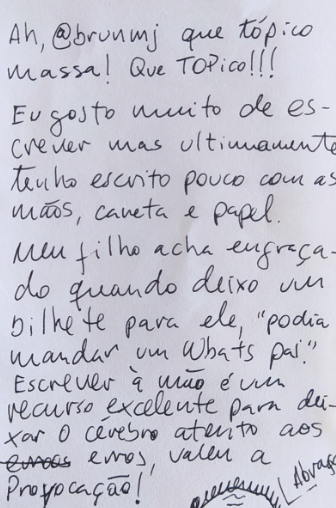 Ah, @brunmj que tópico
massa! Que TOPico!!!
Eu gosto muito de es-
crever mas ultimamente
tenho escrito pouco com as
mãos, caneta e papel.
Meu filho acha engraça-
do quando deixo um
bilhete para ele, "podia
mandar um Whats pai."
Escrever à mão é um
recurso excelente para dei-
xar o cérebro atento aos
erros, valeu a
Provocação!
Abraço